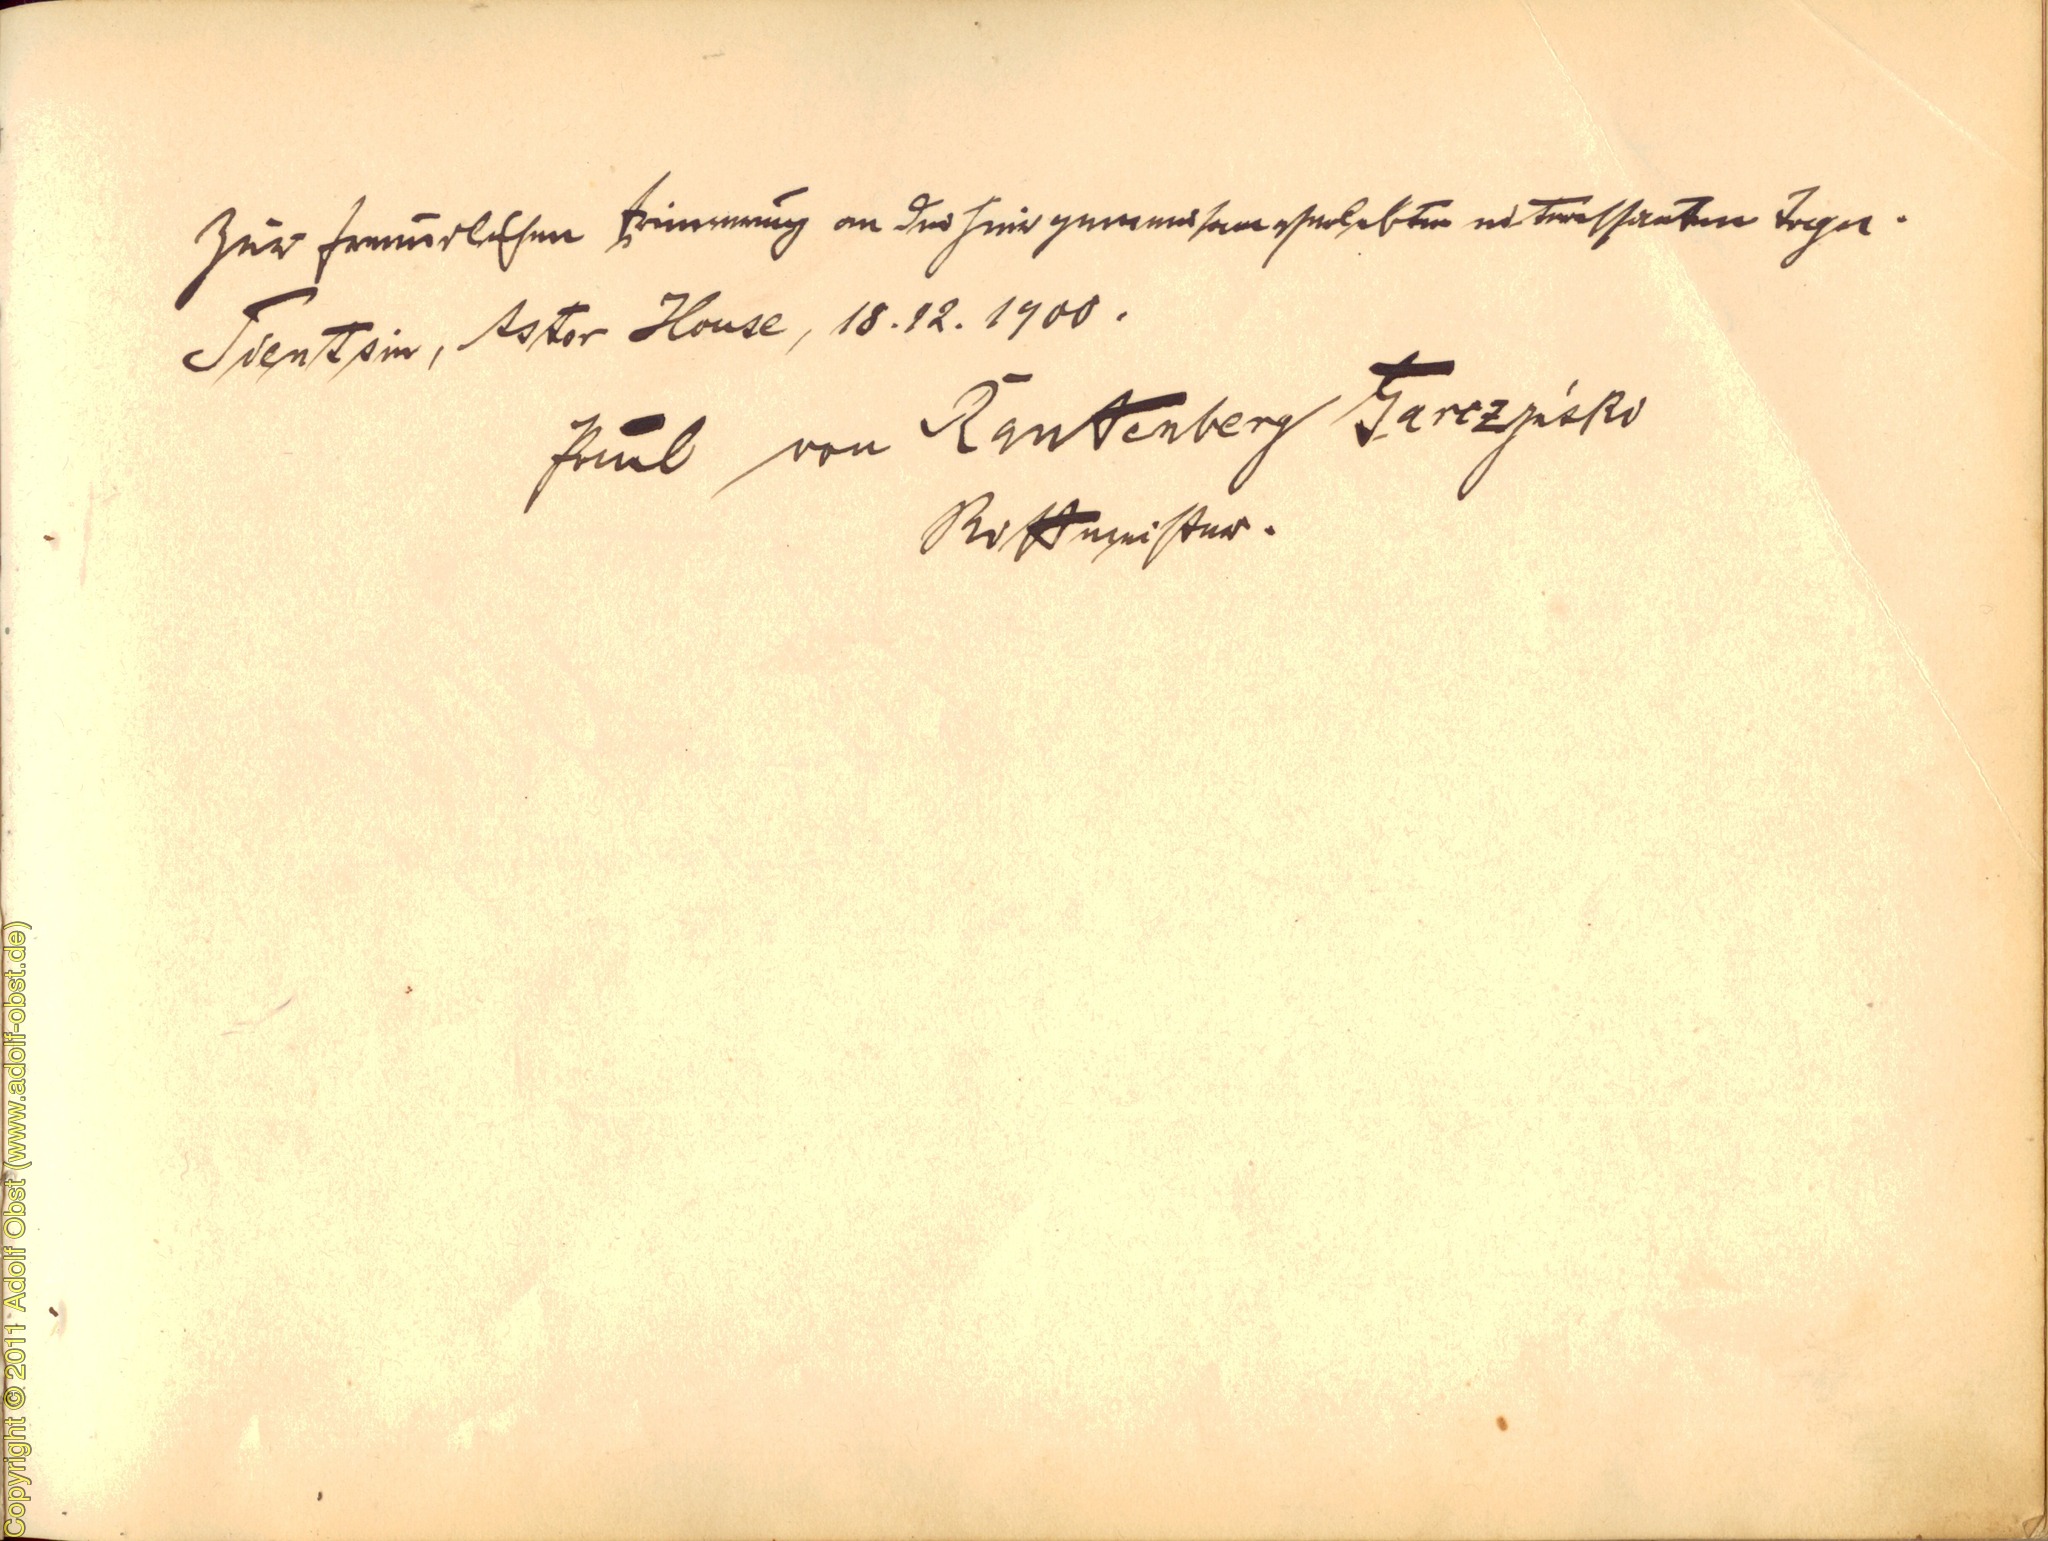 Zur freundlichen Erinnerung an die hier gemeinsam verlebten interessanten Tage.
Tientsin, Astor House, 18.12.1900.
Paul von Rautenberg Garczyński
Rittmeister.
Copyright © 2011 Adolf Obst (www.adolf-obst.de)